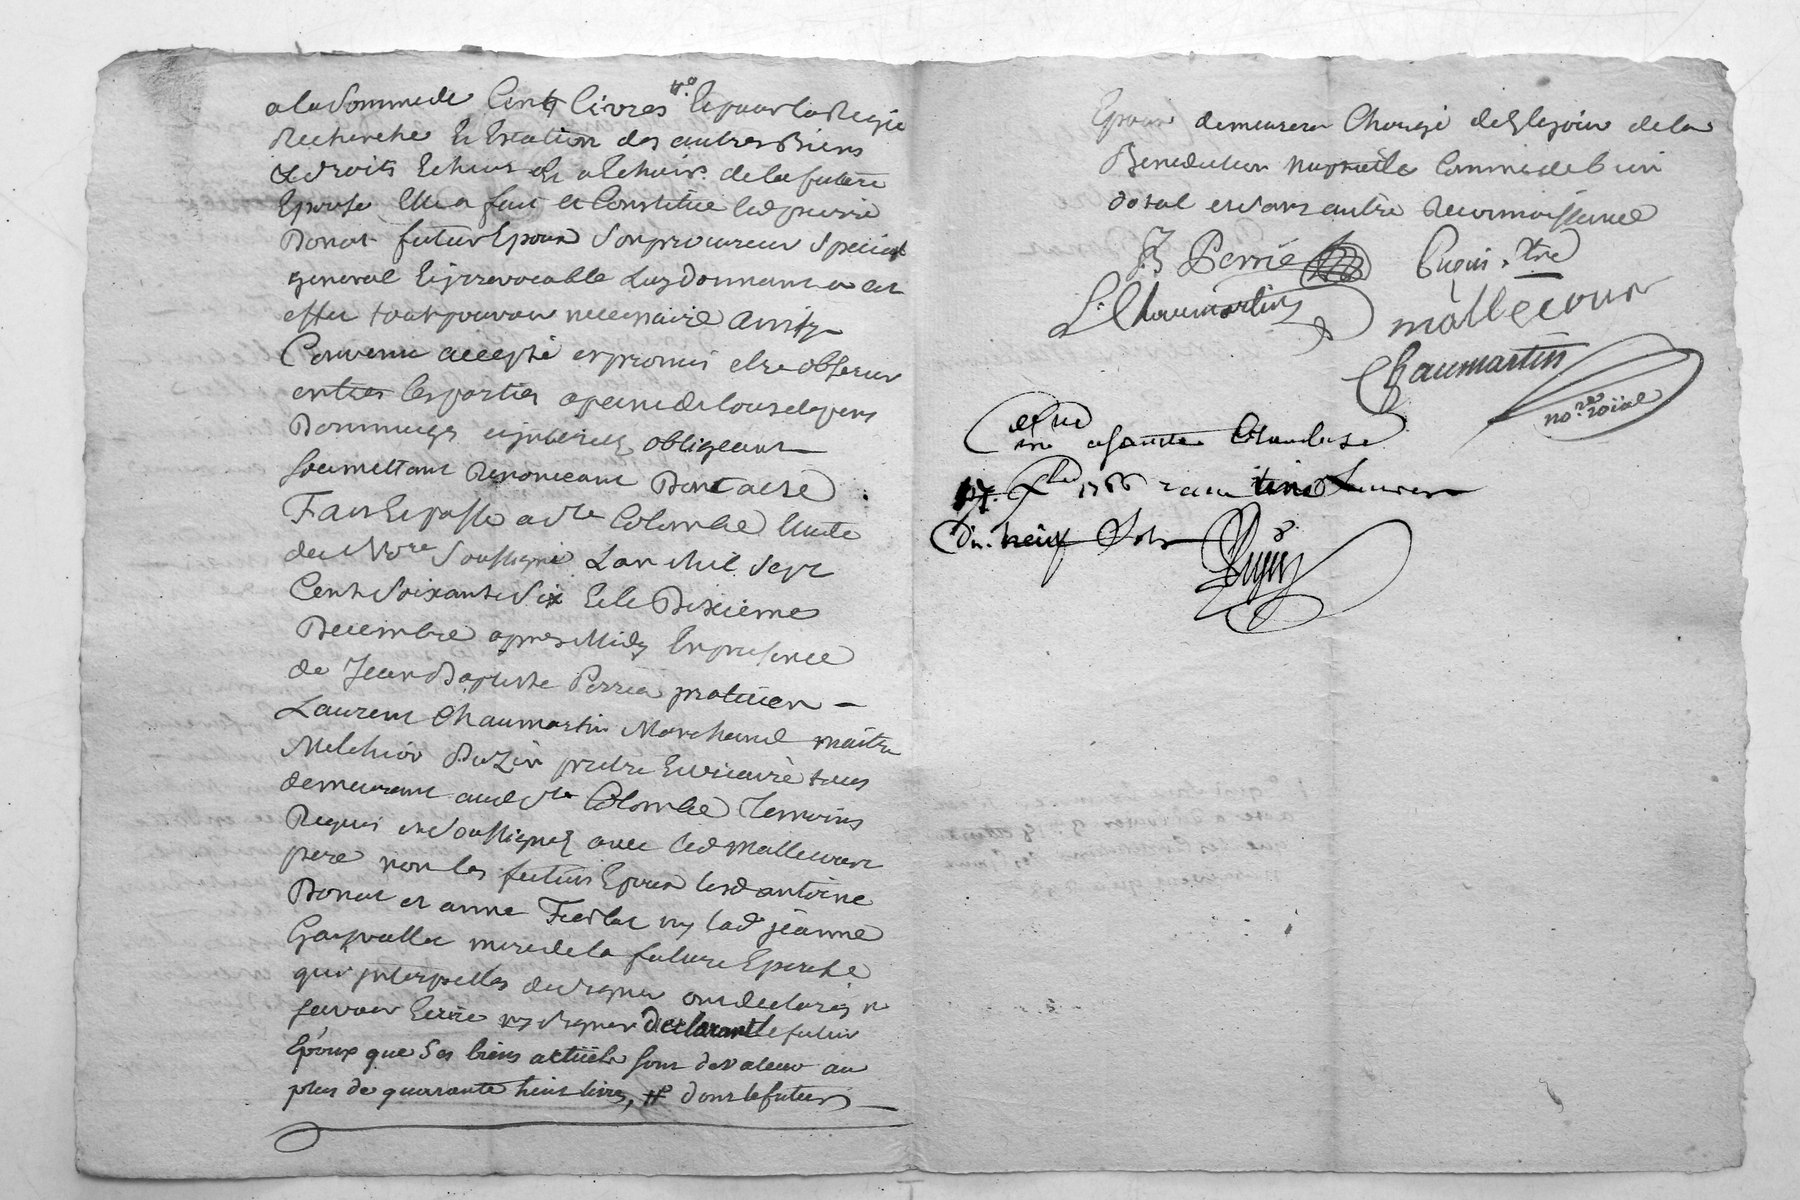 a la Somme de Cent livres Et pour la Regie
Recherche Et Exaction des autres Biens
Et droits Echeus Et a Echoir de la future
Epouse Elle a fait et Constitué led pierre
Donat futur Epoux Son procureur Special
general Et irrevocable Luy donnant a cet
effet tout pouvoir necessaire Ainsy
Convenu accepté et promis etre observé
entres les parties a peine de tous depens
Dommages et interets obligeant
Soumettant Renonceant Dont acte
Fait Et passé a Ste Colombe Etude
du Nore Soussigné Lan Mil Sept
Cent Soixante Six Et le Dixieme
Decembre apres Midy En presence
de Jean Baptiste Perrié praticien
Laurent Chaumartin Marchand maitre
Melchior pretre Et vicaire tous
demeurant aud Ste Colombe Temoins
Requis et Soussignez avec led Mallecour
pere non les futurs Epoux lesd antoine
Donat et anne ny lad jeanne
mere de la future Epouse
qui interpelles de Signer ont declarés ne
Scavoir Ecrire ny Signer declarant le futur
Epoux que Ses biens actuels Sont de valeur au
plus de quarante huit livres, dont le futur
Epoux demeurera Chargé de la
Benediction nuptialle Comme de bien
dotal et Sans autre Reconnoissance
JB Perrié ptre
L. Chaumartin mallecour
Chaumartin
nore roial
a Ste Colombe le
1766 recu Livres
neuf Sols